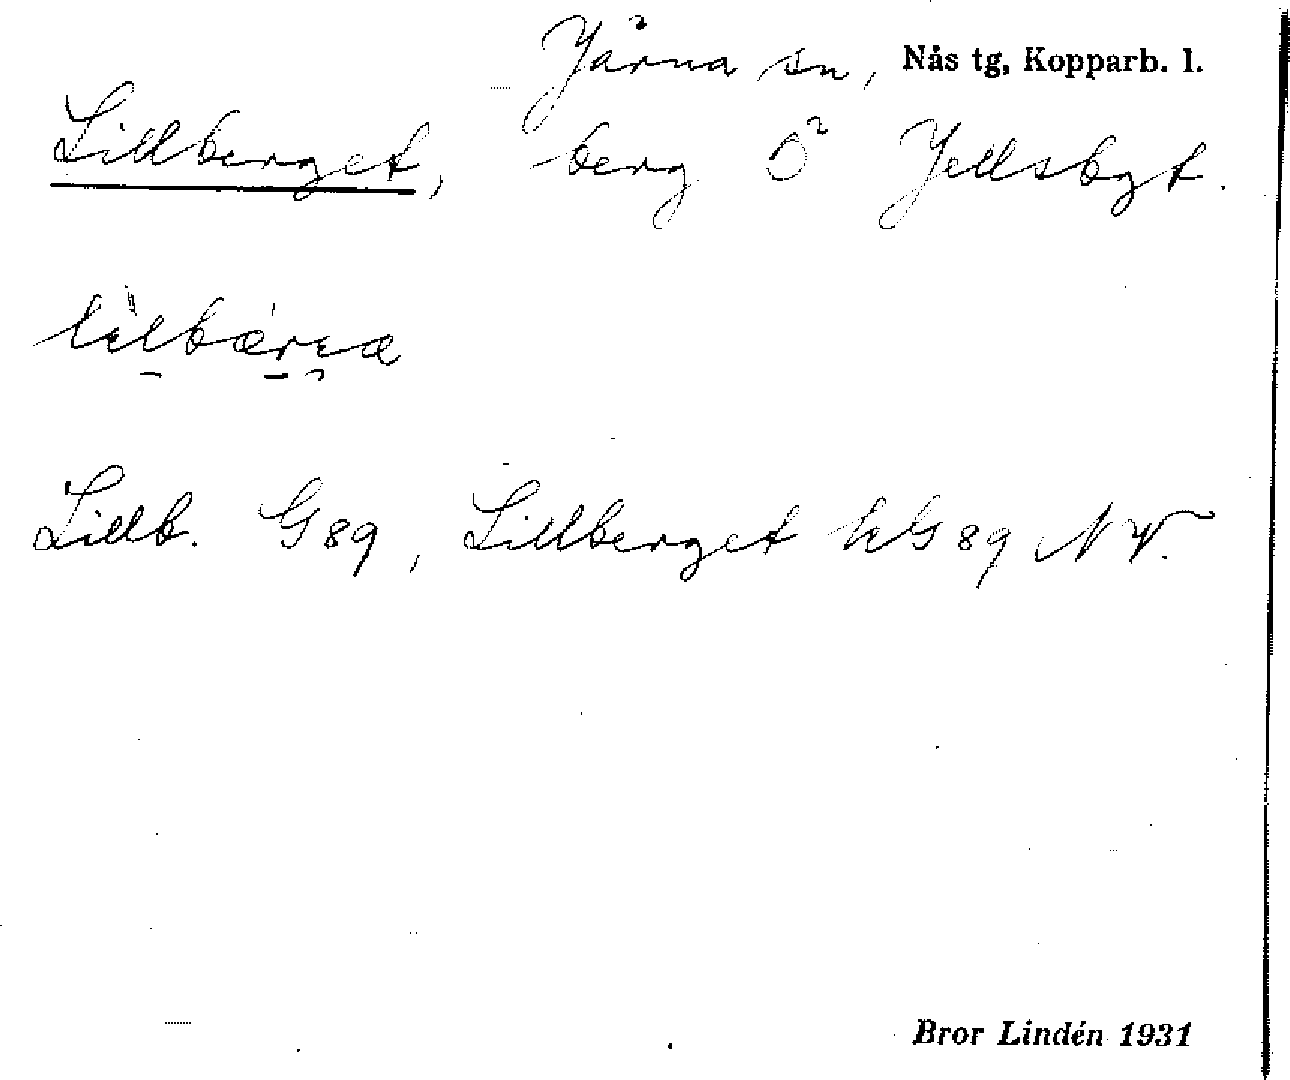 Järna sn, Nås tg, Kopparb. l.
Lillberget, berg Ö² Jellsbgt.
Lillb. G89, Lillberget hG89 NV.
Bror Lindén 1931